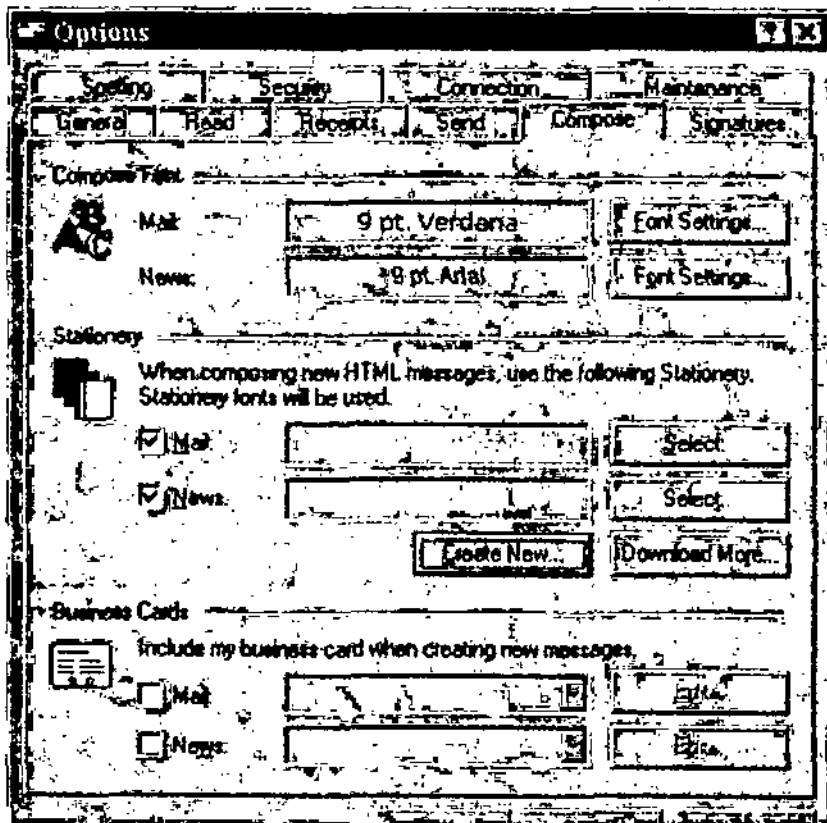 Options
Spelling Security Connection Maintenance
General Read Receipts Send Compose Signatures
Compose Font
Mail: 9 pt. Verdana Font Settings...
News: 9 pt. Arial Font Settings...
Stationery
When composing new HTML messages, use the following Stationery.
Stationery fonts will be used.
Mail: Select...
News: Select...
Create New... Download More...
Business Cards
Include my business card when creating new messages.
Mail:
News: